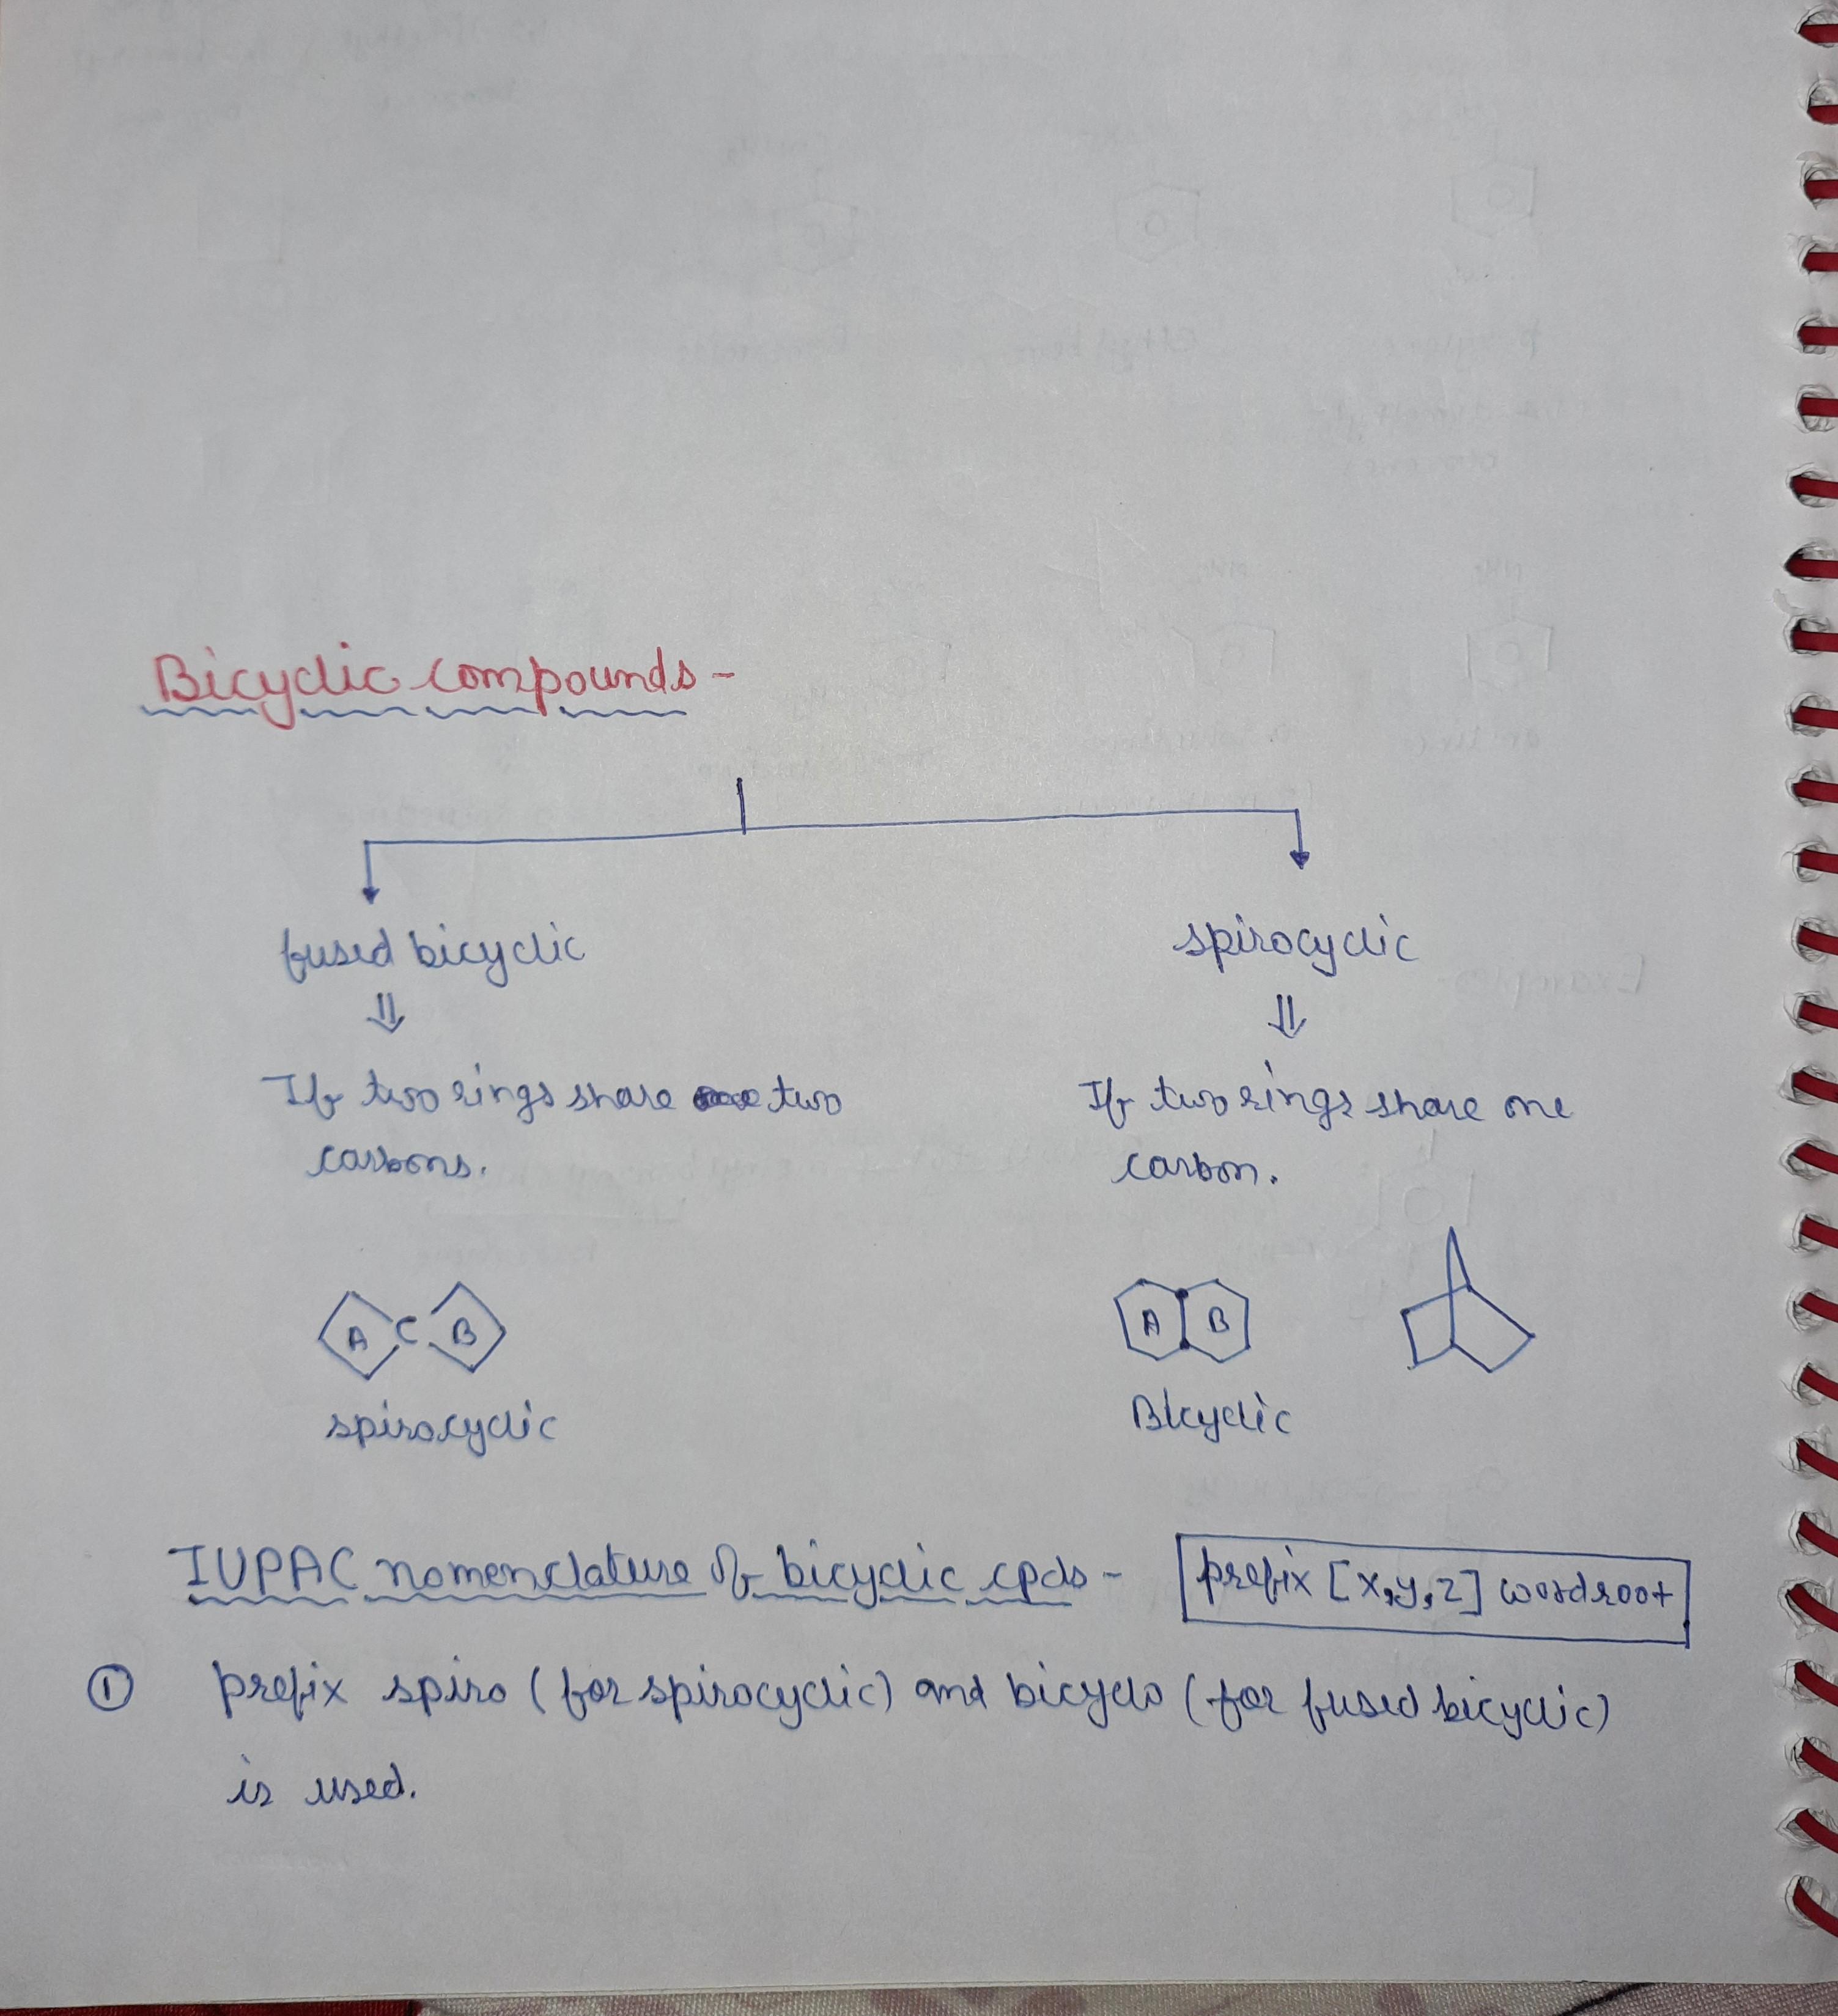 Bicyclic compounds -
fused bicyclic
spirocyclic
⇓
⇓
If two rings share two
carbons.
If two rings share one
carbon.
A C B
spirocyclic
A B
Bicyclic
IUPAC nomenclature of bicyclic cpds -
prefix [x,y,z] wordroot
① prefix spiro (for spirocyclic) and bicyclo (for fused bicyclic)
is used.